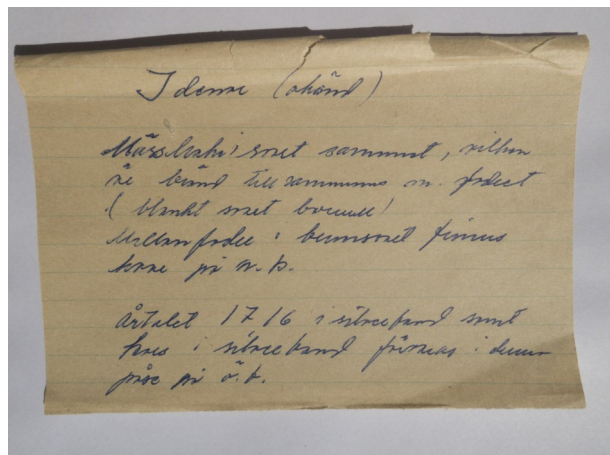 I denna (okänd)
Mässhake i svart sammet, vilken
är bunden tillsammans m. fodret
( blankt svart bomull)
Mellanfoder i brunsvart finnes
kors på n. k.
Årtalet 1716 i silverband samt
kors i silverband finnas i denna
påse på ö. k.